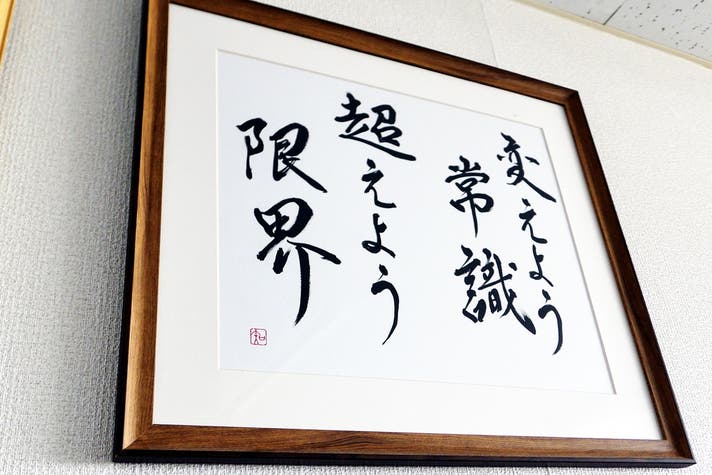 変えよう
常識
超えよう
限界